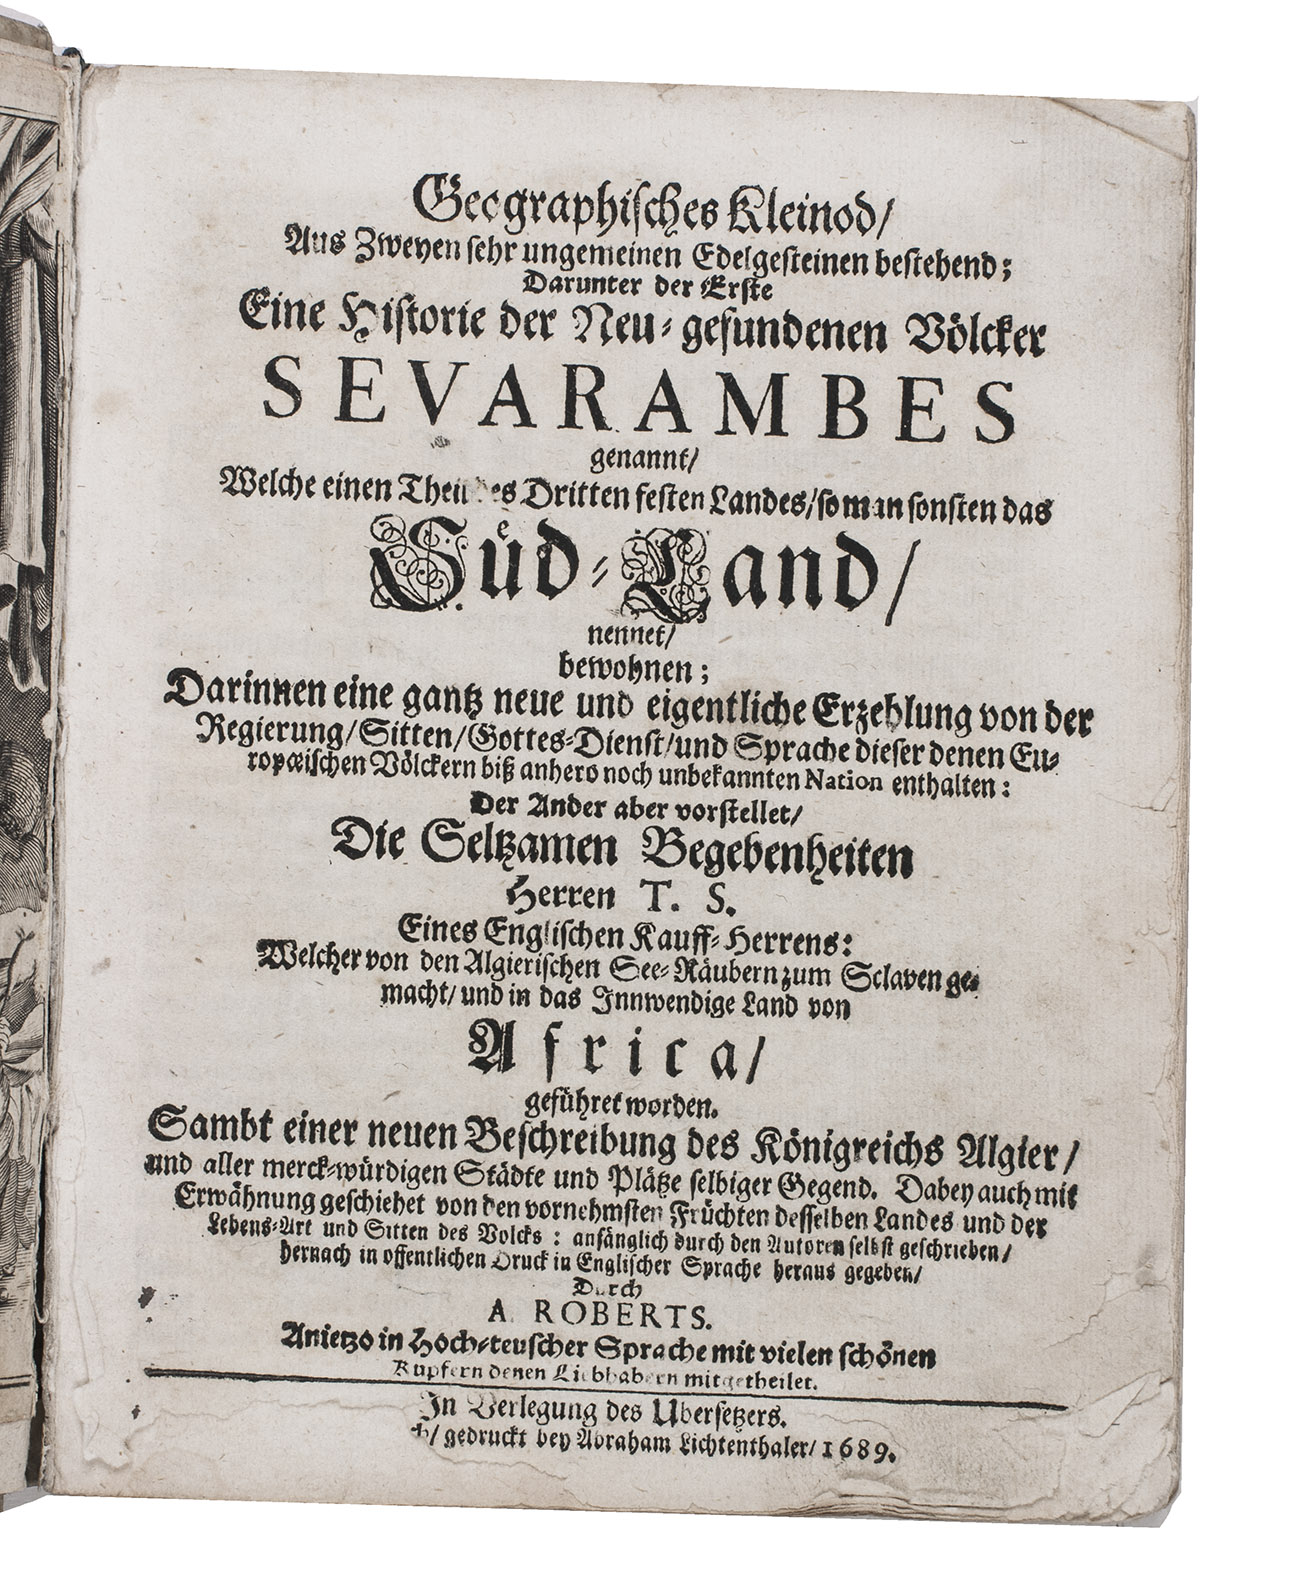 Geographisches Kleinod/
Aus Zweyen sehr ungemeinen Edelgesteinen bestehend;
Darunter der Erste
Eine Historie der Neu-gefundenen Völcker
SEVARAMBES
genannt/
Welche einen Theil des Dritten festen Landes/so man sonsten das
Süd-Land/
nennet/
bewohnen;
Darinnen eine gantz neue und eigentliche Erzehlung von der
Regierung/Sitten/Gottes-Dienst/und Sprache dieser denen Eu-
ropæischen Völckern biß anhero noch unbekannten Nation enthalten:
Der Ander aber vorstellet/
Die Seltzamen Begebenheiten
Herren T. S.
Eines Englischen Kauff-Herrens:
Welcher von den Algierischen See-Räubern zum Sclaven ge-
macht/und in das Innwendige Land von
Africa/
geführet worden.
Sambt einer neuen Beschreibung des Königreichs Algier/
und aller merck-würdigen Städte und Plätze selbiger Gegend. Dabey auch mit
Erwähnung geschiehet von den vornehmsten Früchten desselben Landes und der
Lebens-Art und Sitten des Volcks: anfänglich durch den Autoren selbst geschrieben/
hernach in offentlichen Druck in Englischer Sprache heraus gegeben/
Durch
A. ROBERTS.
Anietzo in Hoch-teuscher Sprache mit vielen schönen
Kupfern denen Liebhabern mitgetheilet.
In Verlegung des Ubersetzers.
gedruckt bey Abraham Lichtenthaler/1689.